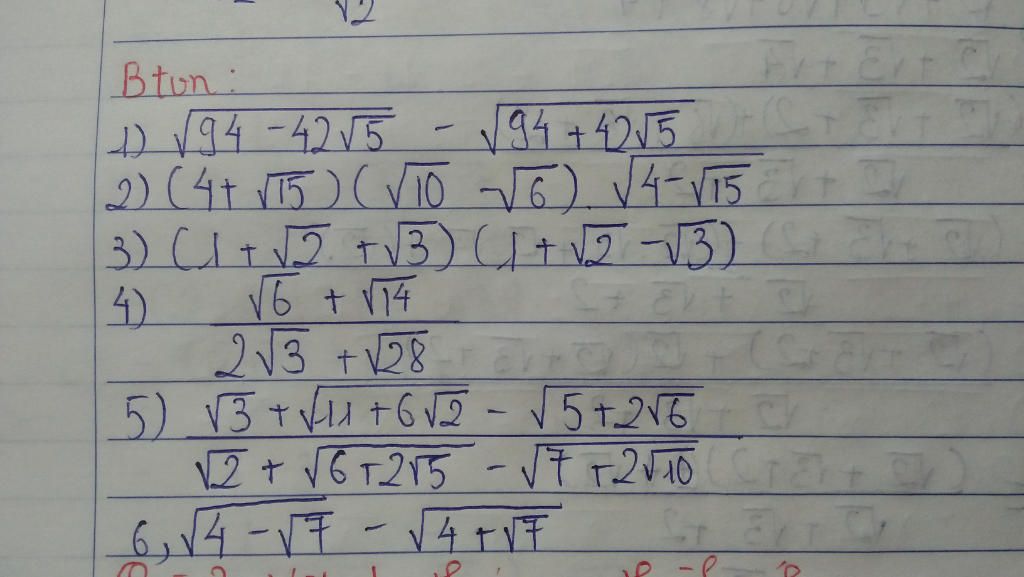 √2
Bton:
1) √(94 - 42√5) - √(94 + 42√5)
2) (4 + √15)(√10 - √6) . √(4 - √15)
3) (1 + √2 + √3)(1 + √2 - √3)
4) (√6 + √14) / (2√3 + √28)
5) (√3 + √(11 + 6√2) - √(5 + 2√6)) / (√2 + √(6 + 2√5) - √(7 + 2√10))
6, √(4 - √7) - √(4 + √7)